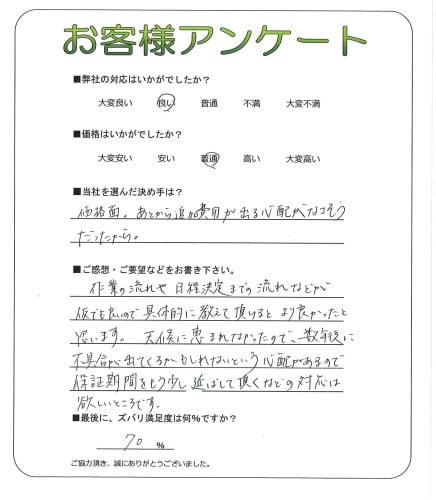 お客様アンケート
■弊社の対応はいかがでしたか？
大変良い 良い 普通 不満 大変不満
■価格はいかがでしたか？
大変安い 安い 普通 高い 大変高い
■当社を選んだ決め手は？
価格面。あとから追加費用が出る心配がなさそう
だったから。
■ご感想・ご要望などをお書き下さい。
作業の流れや日程決定までの流れなどが
仮でも良いので具体的に教えて頂けると より良かったと
思います。 天候に恵まれなかったので、数年後に
不具合が出てくるかもしれないという心配があるので
保証期間をもう少し延ばして頂くなどの対応は
欲しいところです。
■最後に、ズバリ満足度は何％ですか？
70 %
ご協力頂き、誠にありがとうございました。